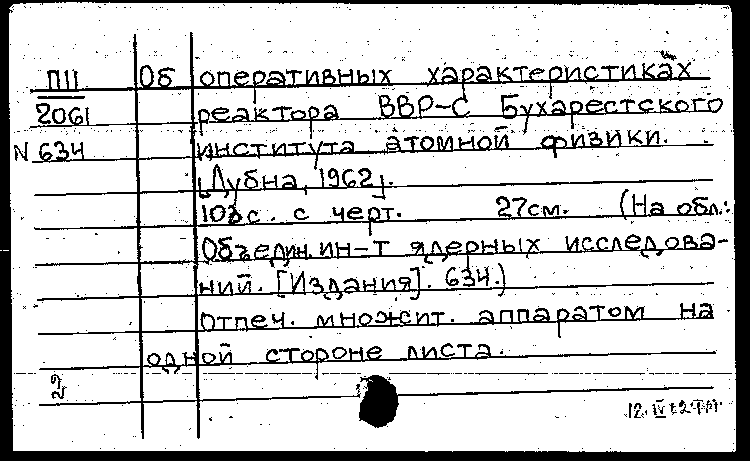 ПII Об оперативных характеристиках
2061 реактора ВВР-С Бухарестского
N 634 института атомной физики.
[Дубна, 1962].
с. с черт. 27см. (На обл.:
Объедин. ин-т ядерных исследова-
ний. [Издания]. 634.)
Отпеч. множит. аппаратом на
одной стороне листа.
2
12. IV